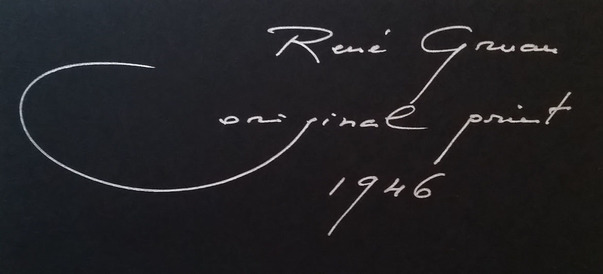 René Gruau
original print
1946